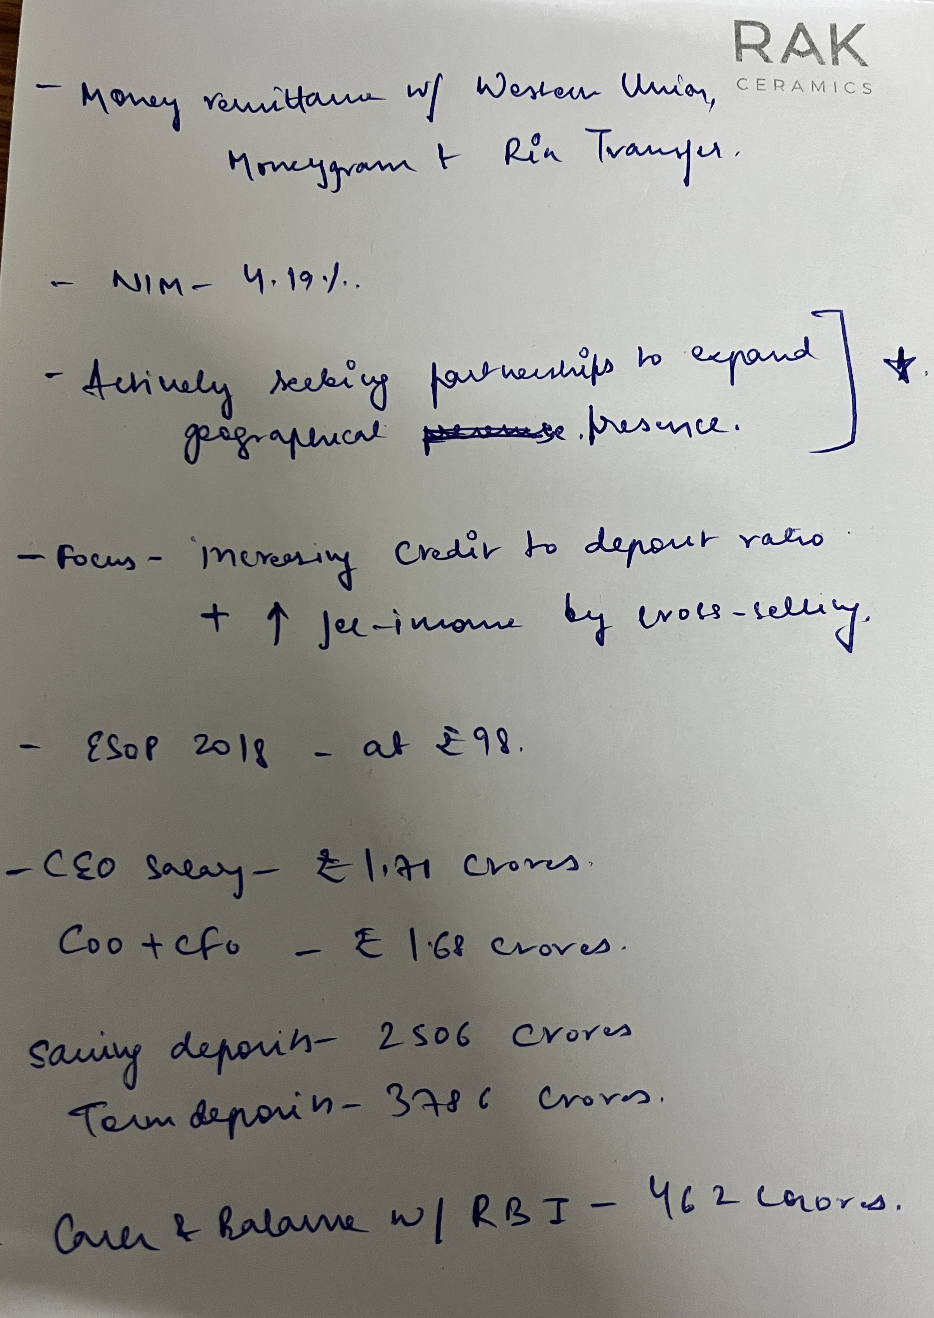 RAK
CERAMICS
- Money remittance w/ Western Union,
Moneygram + Ria Transfer.
- NIM - 4.19%.
- Actively seeking partnerships to expand
geographical presence.
- Focus - increasing credit to deposit ratio
+ ↑ fee-income by cross-selling.
- ESOP 2018 - at ₹98.
- CEO Salary - ₹1.71 crores.
COO + CFO - ₹1.68 crores.
Saving deposits - 2506 crores
Term deposits - 3786 crores.
Cash & Balance w/ RBI - 462 crores.